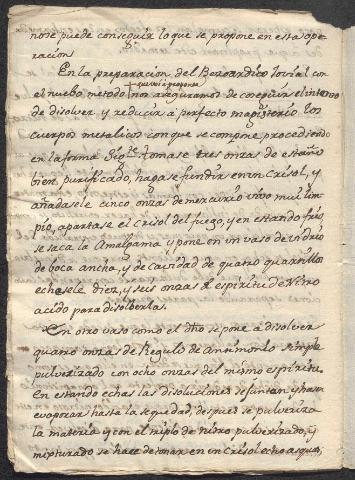 no se puede conseguir lo que se propone en esta ope-
racion.
En la preparacion del Bezoardico Iovial con
el nuebo metodo + que voi à proponer nos aseguramos de conseguir el intento
de disolver, y reducir a perfecto magisterio los
cuerpos metalicos con que se compone, procediendo
en la forma Sigte. Tomase tres onzas de estaño
bien purificado, hagase fundir en un crisol, y
añadasele cinco onzas de mercurio vivo mui lim-
pio, apartase el crisol del fuego, y en estando frio,
se saca la Amalgama y pone en un vaso de vidrio
de boca ancha, y de cavidad de quatro quartillos
echesele diez, y seis onzas de espiritu de Nitro
acido para disolberlas.
En otro vaso como el dho se pone à disolver
quatro onzas de Regulo de Antimonio simple
pulverizado con ocho onzas del mismo espiritu.
En estando echas las disoluciones se juntan, y hasen
evaporar hasta la sequedad, despues se pulveriza
la materia y con el triplo de Nitro pulverizado, y
mixturado se hace detonar en un crisol echo asqua,